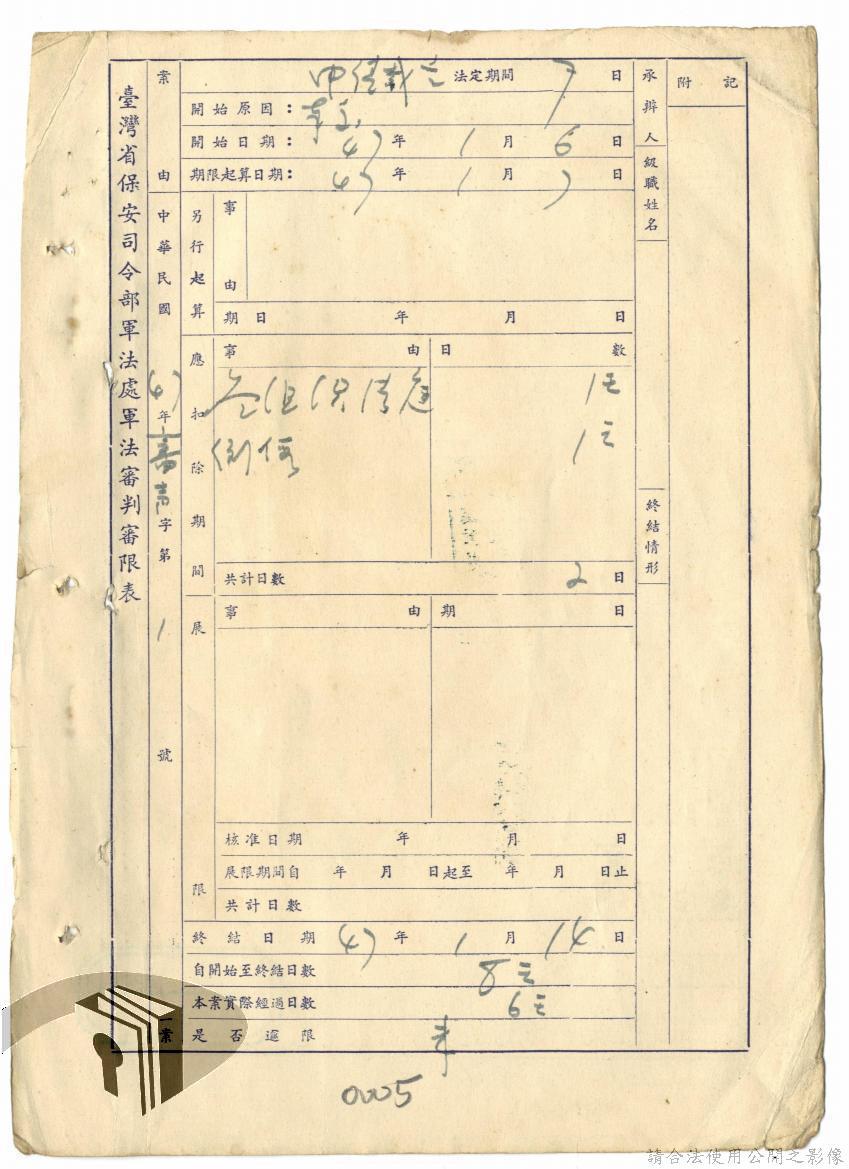 臺灣省保安司令部軍法處軍法審判審限表
案由
中華民國47年審 字第1號
一案
法定期間 7日
開始原因：
開始日期： 47年1月6日
期限起算日期： 47年1月7日
另行起算
事由
期日 年 月 日
應扣除期間
事由 日數
1天
1天
共計日數 2日
展限
事由 期日
核准日期 年 月 日
展限期間自 年 月 日起至 年 月 日止
共計日數
終結日期 47年1月14日
自開始至終結日數 8天
本案實際經過日數 6天
是否逾限 未
承辦人級職姓名
終結情形
附記
0005
請合法使用公開之影像